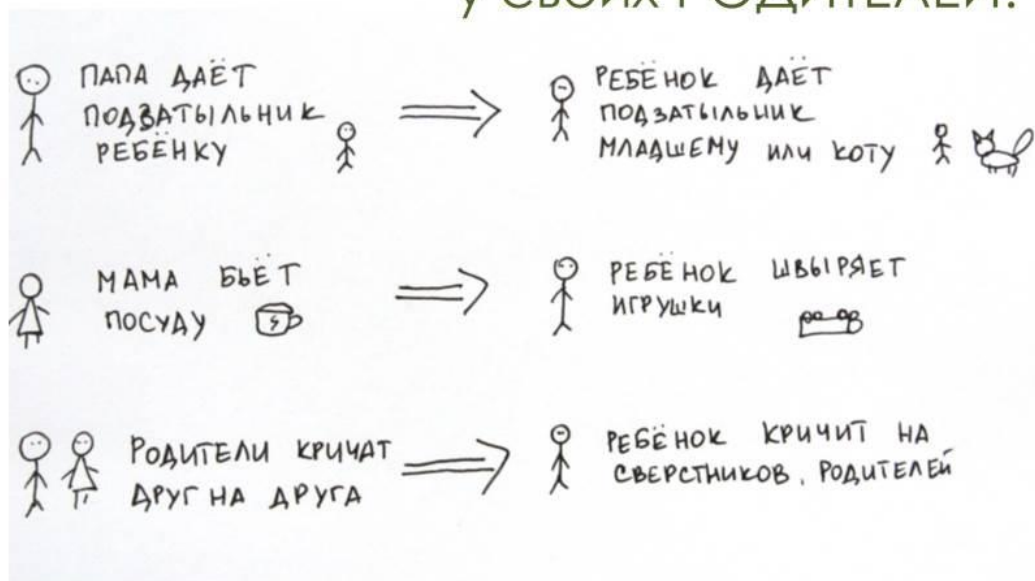 У СВОИХ РОДИТЕЛЕЙ:
ПАПА ДАЁТ
ПОДЗАТЫЛЬНИК
РЕБЁНКУ
РЕБЁНОК ДАЁТ
ПОДЗАТЫЛЬНИК
МЛАДШЕМУ ИЛИ КОТУ
МАМА БЬЁТ
ПОСУДУ
РЕБЁНОК ШВЫРЯЕТ
ИГРУШКИ
РОДИТЕЛИ КРИЧАТ
ДРУГ НА ДРУГА
РЕБЁНОК КРИЧИТ НА
СВЕРСТНИКОВ, РОДИТЕЛЕЙ